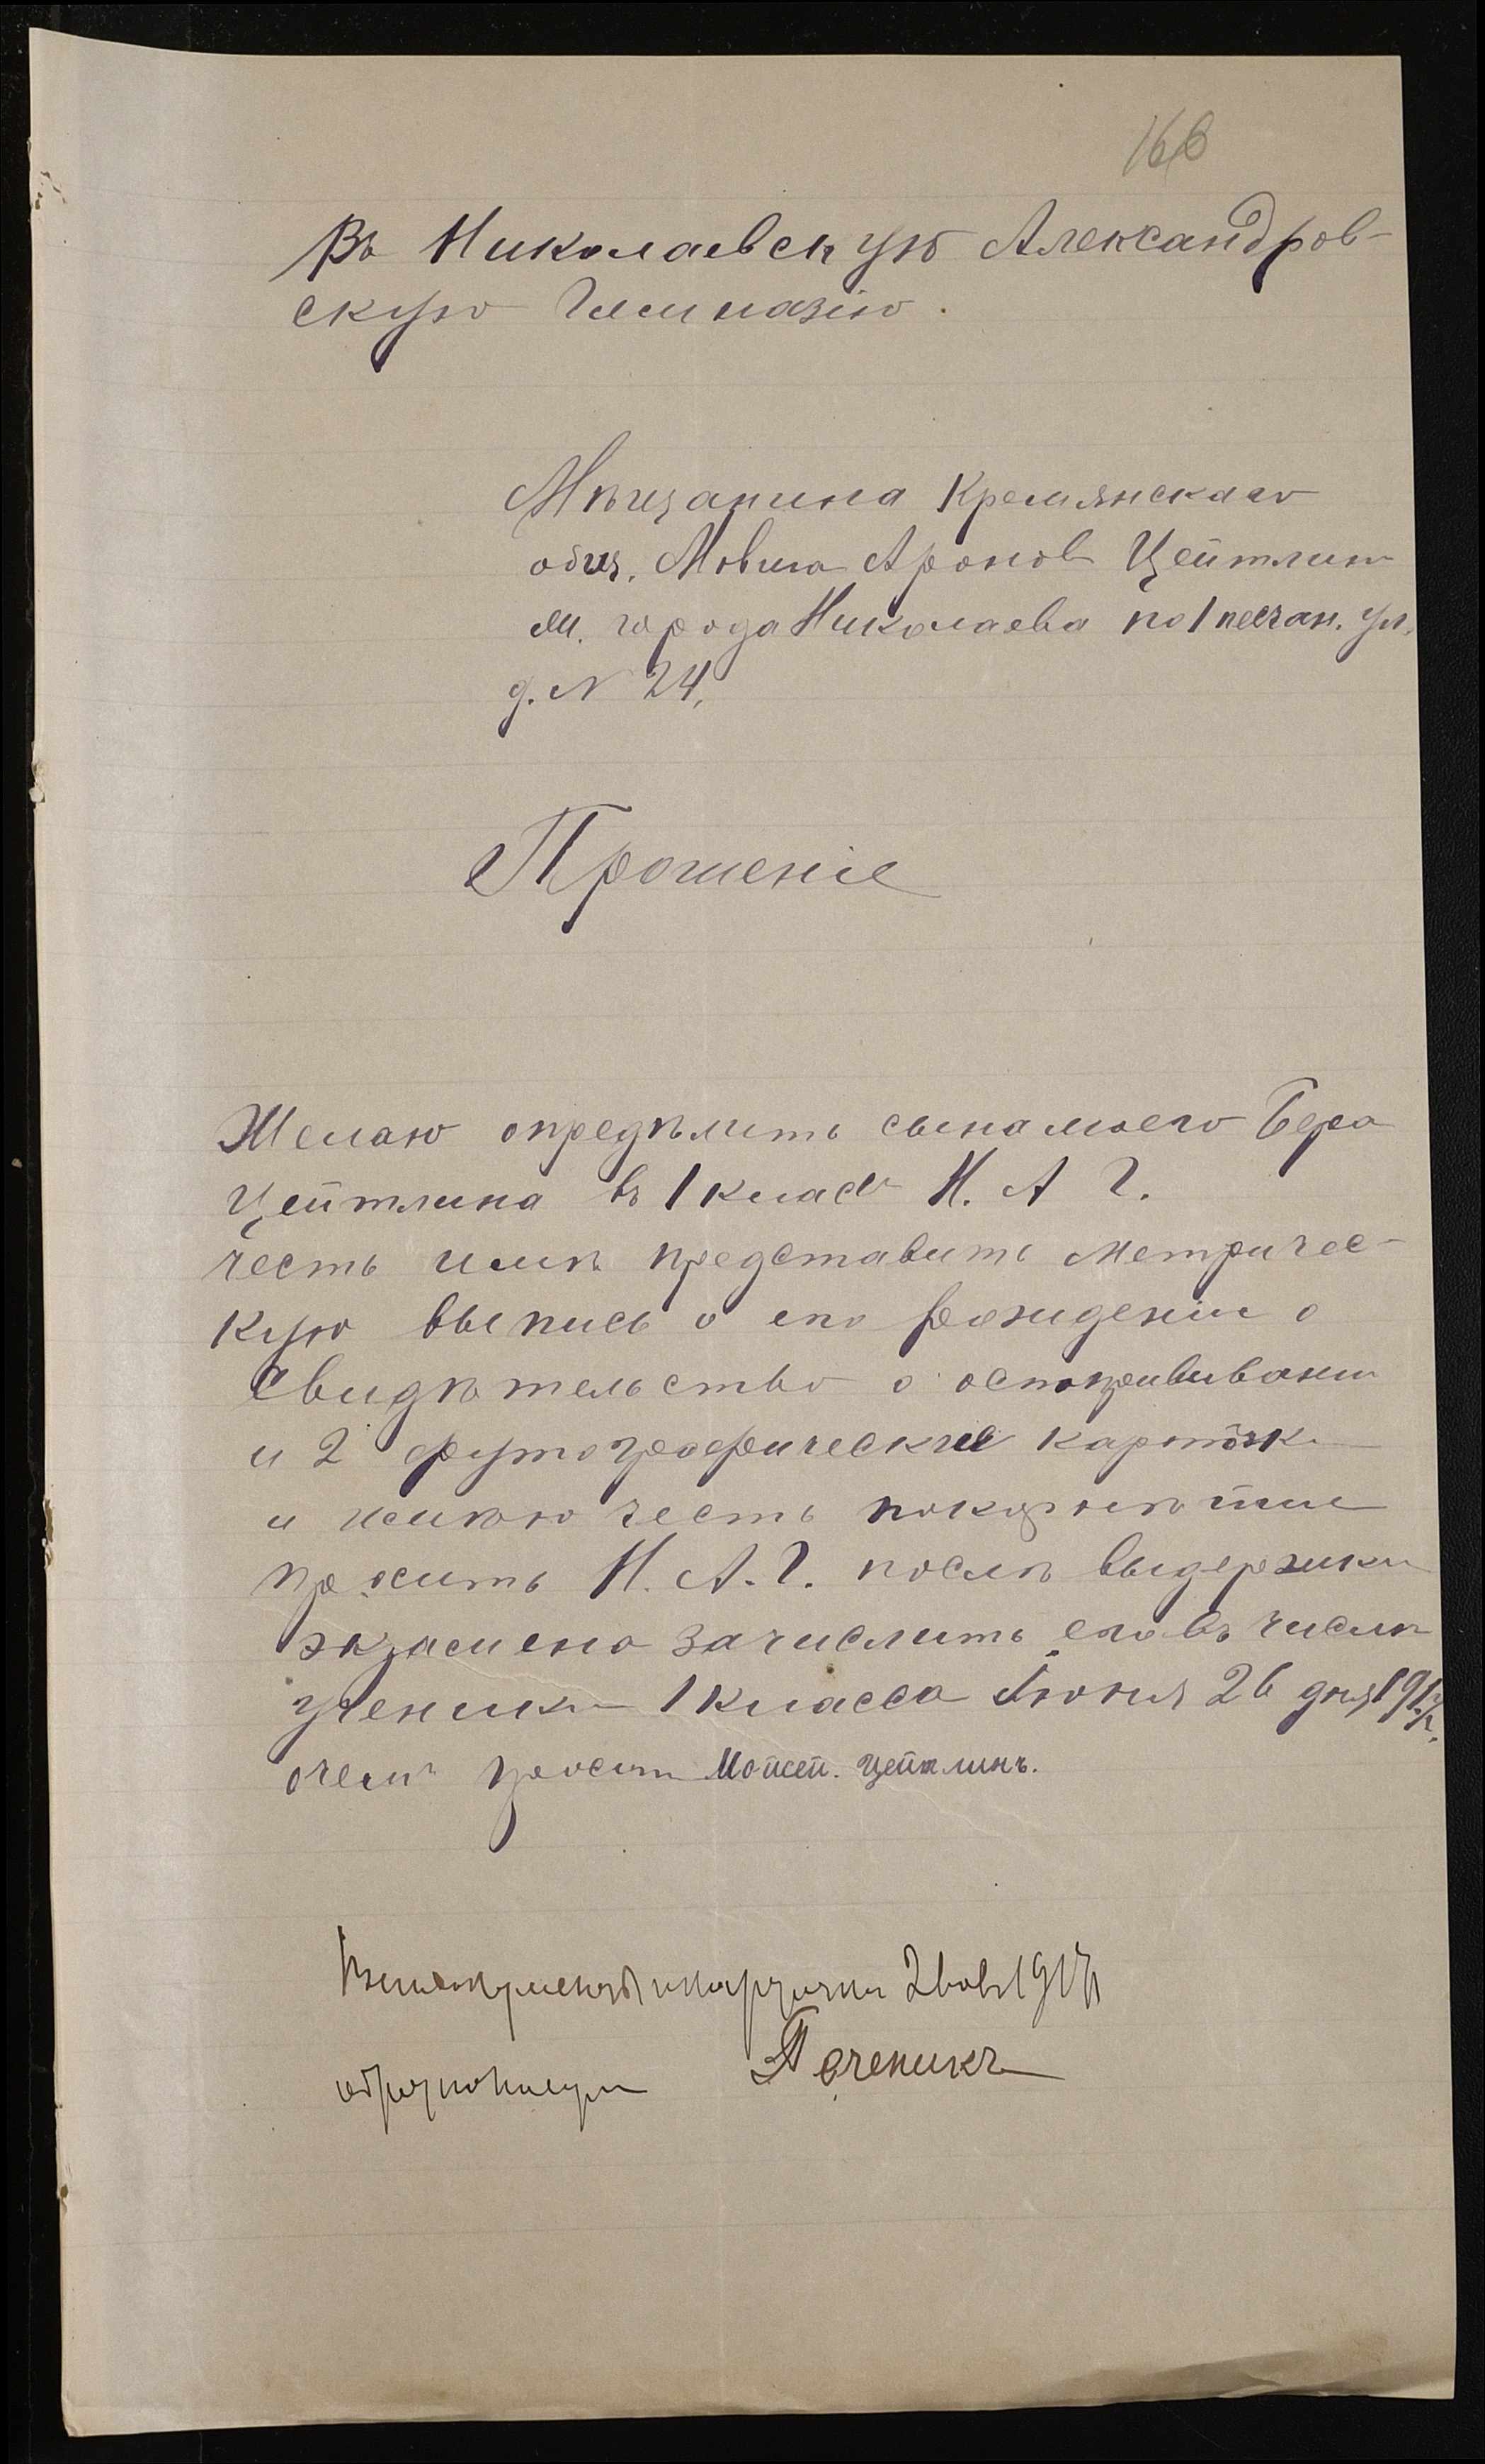 166
Въ Николаевскую Александров-
скую Гимназію.
Мѣщанина Кремянскаго
общ. Мовша Аронов Цейтлин
г. города Николаева по 1 песчан. ул.
д. N 24,
Прошеніе
Желаю опредѣлить сына моего Бера
Цейтлина въ 1 клас Н. А Г.
честь имѣ представить метричес-
кую выпись о его рожидении о
свидѣтельство о оспопрививании
и 2 футографические карточк
и имѣю честь покорнѣйше
просить Н. А. Г. послѣ выдержки
экзамена зачислить его въ число
ученики 1 класса Июня 26 дня 1917 г.
очем просит Мойсей. Цейтлинъ.
документы и карточки 1917
обратно получ
Я Печеникъ